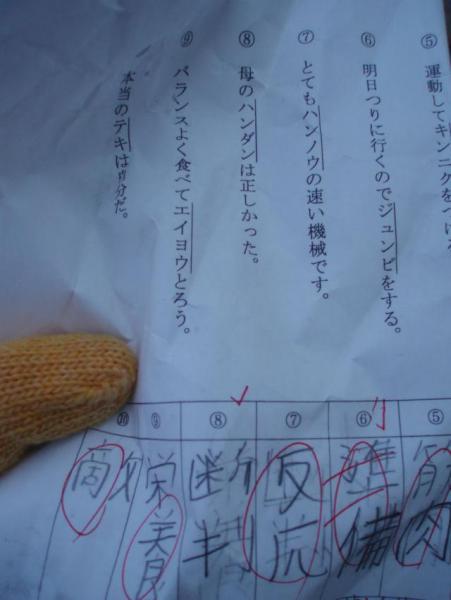 ⑤ 運動してキンニクをつける
⑥ 明日つりに行くのでジュンビをする。
⑦ とてもハンノウの速い機械です。
⑧ 母のハンダンは正しかった。
⑨ バランスよく食べてエイヨウとろう。
本当のテキは自分だ。
⑤ 筋肉
⑥ 準備
⑦ 反
⑧ 断判
⑨ 栄養
⑩ 敵